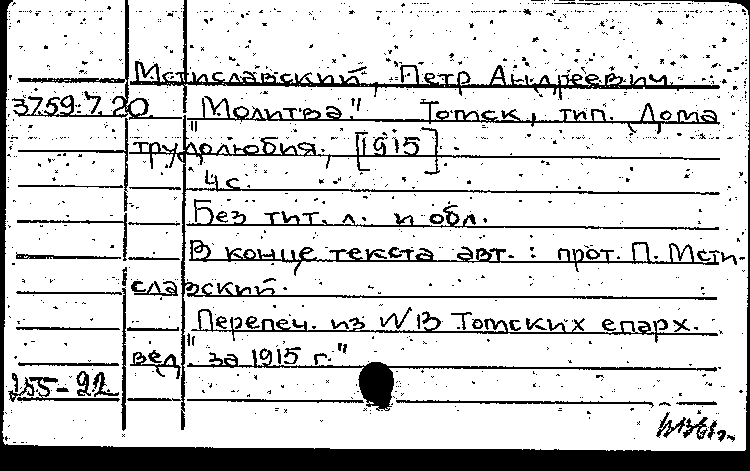 Мстиславский, Петр Андреевич
3759.7.20 "Молитва." Томск, тип. Дома
трудолюбия, [1915].
4 с.
Без тит. л. и обл.
В конце текста авт.: прот. П. Мсти-
славский.
Перепеч. из №13 "Томских епарх.
вед. за 1915 г."
255-92